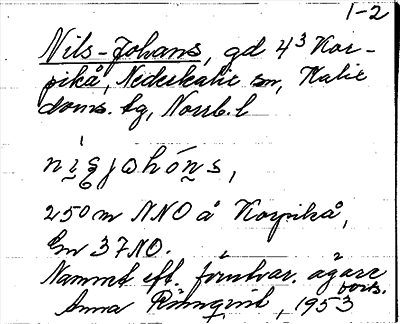 1-2
Nils-Johans, gd 4³ Kor-
pikå, Nederkalix sn, Kalix
doms. tg, Norrb. l
nigjohóns,
250 m NNO å Korpikå,
En 37NO.
Namnet eft. förutvar. ägare
Anna Rönnqvist, 1953